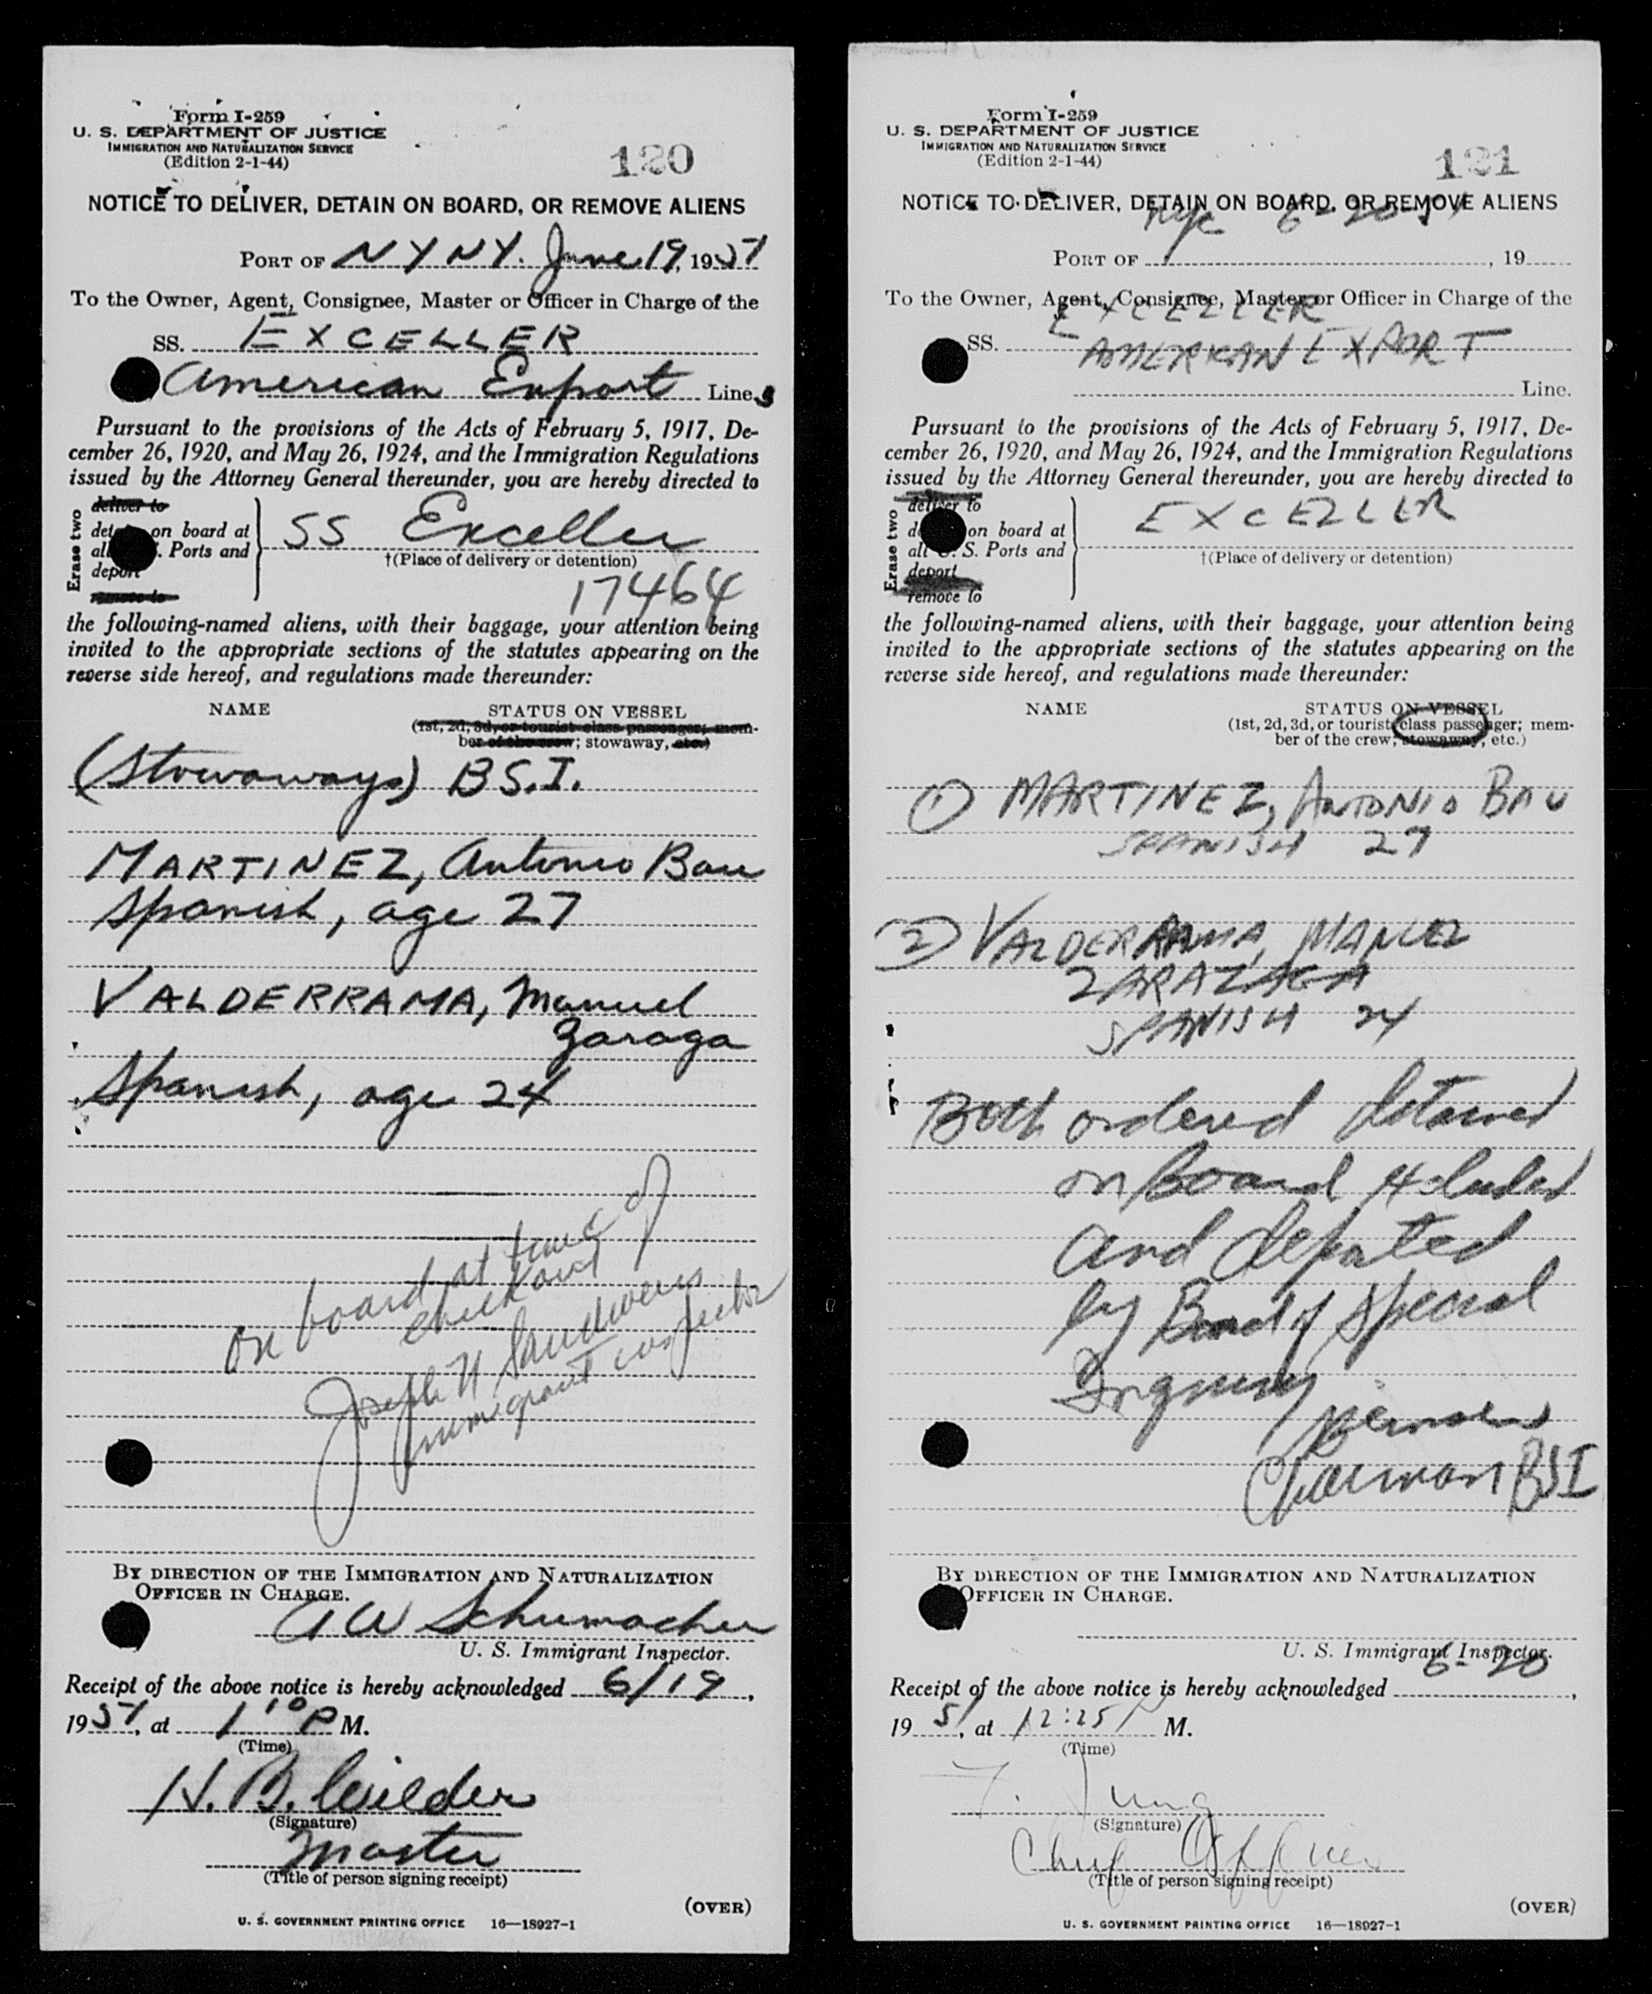 Form I-259
U. S. DEPARTMENT OF JUSTICE
IMMIGRATION AND NATURALIZATION SERVICE
(Edition 2-1-44)
120
NOTICE TO DELIVER, DETAIN ON BOARD, OR REMOVE ALIENS
PORT OF N Y N Y. June 19, 1951
To the Owner, Agent, Consignee, Master or Officer in Charge of the
SS. EXCELLER
American Export Lines
Pursuant to the provisions of the Acts of February 5, 1917, De-
cember 26, 1920, and May 26, 1924, and the Immigration Regulations
issued by the Attorney General thereunder, you are hereby directed to
Erase two
deliver to
on board at
Ports and
deport
remove to
SS Exceller
†(Place of delivery or detention)
17464
the following-named aliens, with their baggage, your attention being
invited to the appropriate sections of the statutes appearing on the
reverse side hereof, and regulations made thereunder:
NAME STATUS ON VESSEL
(1st, 2d, 3d, or tourist class passenger; mem-
ber of the crew; stowaway, etc.)
(Stowaways) B S. I.
MARTINEZ, Antonio Bau
Spanish, age 27
VALDERRAMA, Manuel
Zaraga
Spanish, age 24
on board at time of
checkout
Joseph
Immigrant inspector
BY DIRECTION OF THE IMMIGRATION AND NATURALIZATION
OFFICER IN CHARGE.
A W Schumacher
U. S. Immigrant Inspector.
Receipt of the above notice is hereby acknowledged 6/19,
1951, at 1 10 P M.
(Time)
H. B. Wilder
(Signature)
Master
(Title of person signing receipt)
(OVER)
U. S. GOVERNMENT PRINTING OFFICE 16—18927-1
Form I-259
U. S. DEPARTMENT OF JUSTICE
IMMIGRATION AND NATURALIZATION SERVICE
(Edition 2-1-44)
121
NOTICE TO DELIVER, DETAIN ON BOARD, OR REMOVE ALIENS
NYC 6-20-51
PORT OF , 19
To the Owner, Agent, Consignee, Master or Officer in Charge of the
EXCELLER
SS. AMERICAN EXPORT
Line.
Pursuant to the provisions of the Acts of February 5, 1917, De-
cember 26, 1920, and May 26, 1924, and the Immigration Regulations
issued by the Attorney General thereunder, you are hereby directed to
Erase two
deliver to
on board at
S. Ports and
deport
remove to
EXCELLER
†(Place of delivery or detention)
the following-named aliens, with their baggage, your attention being
invited to the appropriate sections of the statutes appearing on the
reverse side hereof, and regulations made thereunder:
NAME STATUS ON VESSEL
(1st, 2d, 3d, or tourist class passenger; mem-
ber of the crew; stowaway, etc.)
1 MARTINEZ, ANTONIO BAU
SPANISH 27
2 VALDERRAMA, MANUEL
ZARAZAGA
SPANISH 24
Both ordered detained
on board excluded
and deported
by Board of Special
Inquiry
Chairman BSI
BY DIRECTION OF THE IMMIGRATION AND NATURALIZATION
OFFICER IN CHARGE.
U. S. Immigrant Inspector.
6-20
Receipt of the above notice is hereby acknowledged ,
19 51, at 12:25 P M.
(Time)
F. Jung
(Signature)
Chief Officer
(Title of person signing receipt)
(OVER)
U. S. GOVERNMENT PRINTING OFFICE 16—18927-1